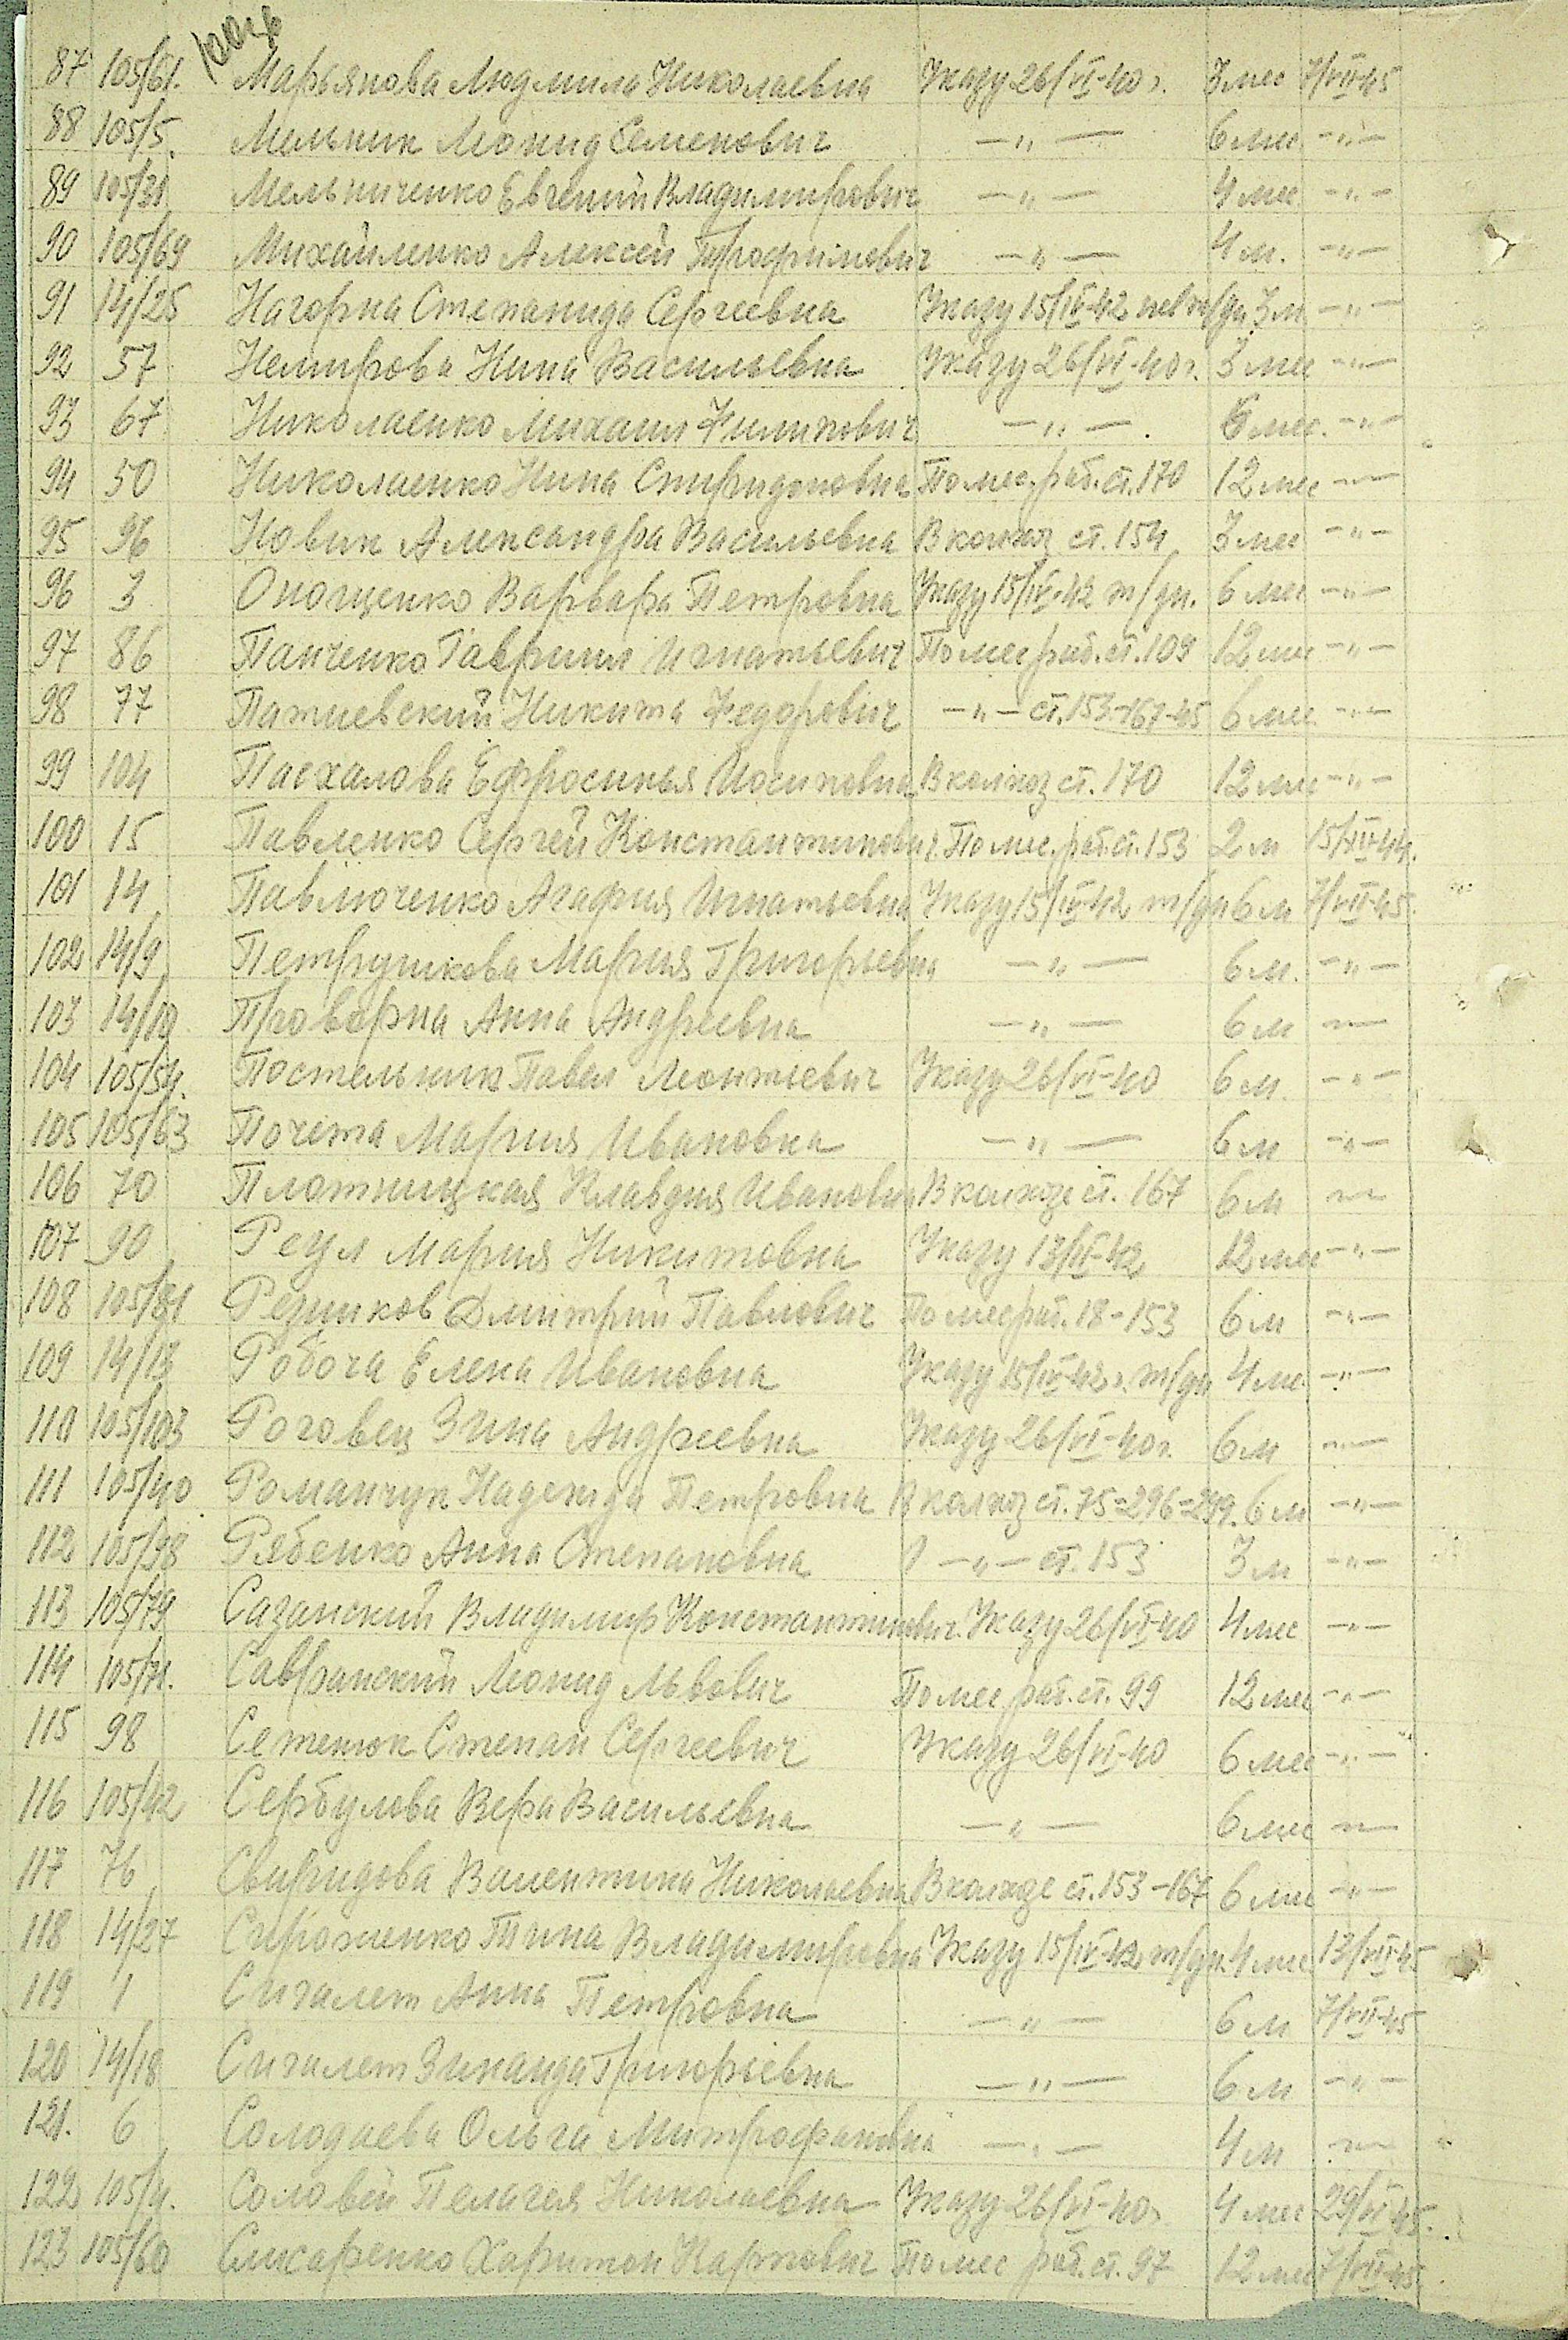 87 105/61. Марьянова Людмила Николаевна Указу 26/VI-40г. 3 мес 7/VII-45
88 105/5. Мельник Леонид Семенович —„— 6 мес —„—
89 105/31 Мельниченко Евгений Владимирович —„— 4 мес —„—
90 105/69 Михайленко Алексей Трофимович —„— 4 м. —„—
91 14/25 Нагорна Степанида Сергеевна Указу 15/IV-42 т/дн 3 м —„—
92 57 Немирова Нина Васильевна Указу 26/VI-40г. 3 мес —„—
93 67 Николаенко Михаил Филипович —„—. 6 мес. —„—
94 50 Николаенко Нина Спиридоновна По мес. раб. ст. 170 12 мес —„—
95 96 Новик Александра Васильевна В колхоз ст. 154 3 мес —„—
96 3 Онощенко Варвара Петровна Указу 15/IV-42 т/дн. 6 мес —„—
97 86 Панченко Гавриил Игнатьевич По мес раб. ст. 109 12 мес —„—
98 77 Патиевский Никита Федорович —„— ст. 153-167-45 6 мес —„—
99 104 Пасхалова Ефросинья Иосиповна В колхоз ст. 170 12 мес —„—
100 15 Павленко Сергей Константинович По мес. раб. ст. 153 2 м 15/XII-44.
101 14 Павлюченко Агафия Игнатьевна Указу 15/IV-42 т/дн 6 м 7/VII-45.
102 14/9 Петрушкова Мария Григорьевна —„— 6 м. —„—
103 14/10 Проворна Анна Андреевна —„— 6 м —„—
104 105/54. Постельник Павел Леонтиевич Указу 26/VI-40 6 м. —„—
105 105/63 Почета Мария Ивановна —„— 6 м —„—
106 70 Плотницкая Клавдия Ивановна В колхозе ст. 167 6 м —„—
107 90 Реул Мария Никитовна Указу 13/II-42 12 мес —„—
108 105/81 Резников Дмитрий Павлович По мес раб. 18-153 6 м —„—
109 14/13 Робоча Елена Ивановна Указу 15/IV-42г. т/дн 4 мес —„—
110 105/103 Роговец Зина Андреевна Указу 26/VI-40г. 6 м —„—
111 105/40 Романчук Надежда Петровна В колхоз ст. 75=296=249. 6 м —„—
112 105/98 Рябенко Анна Степановна —„— ст. 153 3 м —„—
113 105/79 Сазанский Владимир Константинович. Указу 26/VI-40 4 мес —„—
114 105/71. Савранский Леонид Львович По мес. раб. ст. 99 12 мес —„—
115 98 Сетенюк Степан Сергеевич Указу 26/VI-40 6 мес —„—
116 105/42 Сербулова Вера Васильевна —„— 6 мес —„—
117 76 Свиридова Валентина Николаевна В колхозе ст. 153-167 6 мес —„—
118 14/27 Сироженко Тина Владимировна Указу 15/IV-42 т/дн. 4 мес 13/VII-45
119 1 Сигалет Анна Петровна —„— 6 м 7/VII-45
120 14/18 Сигалет Зинаида Григорьевна —„— 6 м —„—
121. 6 Солодаева Ольга Митрофановна —„— 4 м —„—
122 105/4. Соловей Пелагея Николаевна Указу 26/VI-40г. 4 мес 29/VI-45.
123 105/60 Слисаренко Харитон Карпович По мес раб. ст. 97 12 мес 7/VII-45.